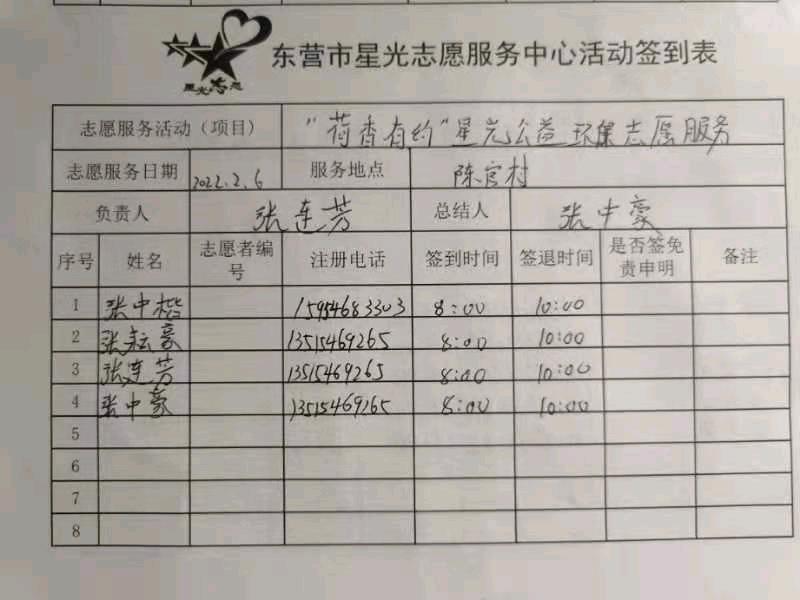 星光志愿
东营市星光志愿服务中心活动签到表
志愿服务活动（项目） "荷香有约"星光公益环保志愿服务
志愿服务日期 2022.2.6 服务地点 陈官村
负责人 张连芳 总结人 张中豪
序号 姓名 志愿者编号 注册电话 签到时间 签退时间 是否签免责申明 备注
1 张中楷 15954683303 8:00 10:00
2 张耘豪 13515469265 8:00 10:00
3 张连芳 13515469265 8:00 10:00
4 张中豪 13515469265 8:00 10:00
5
6
7
8